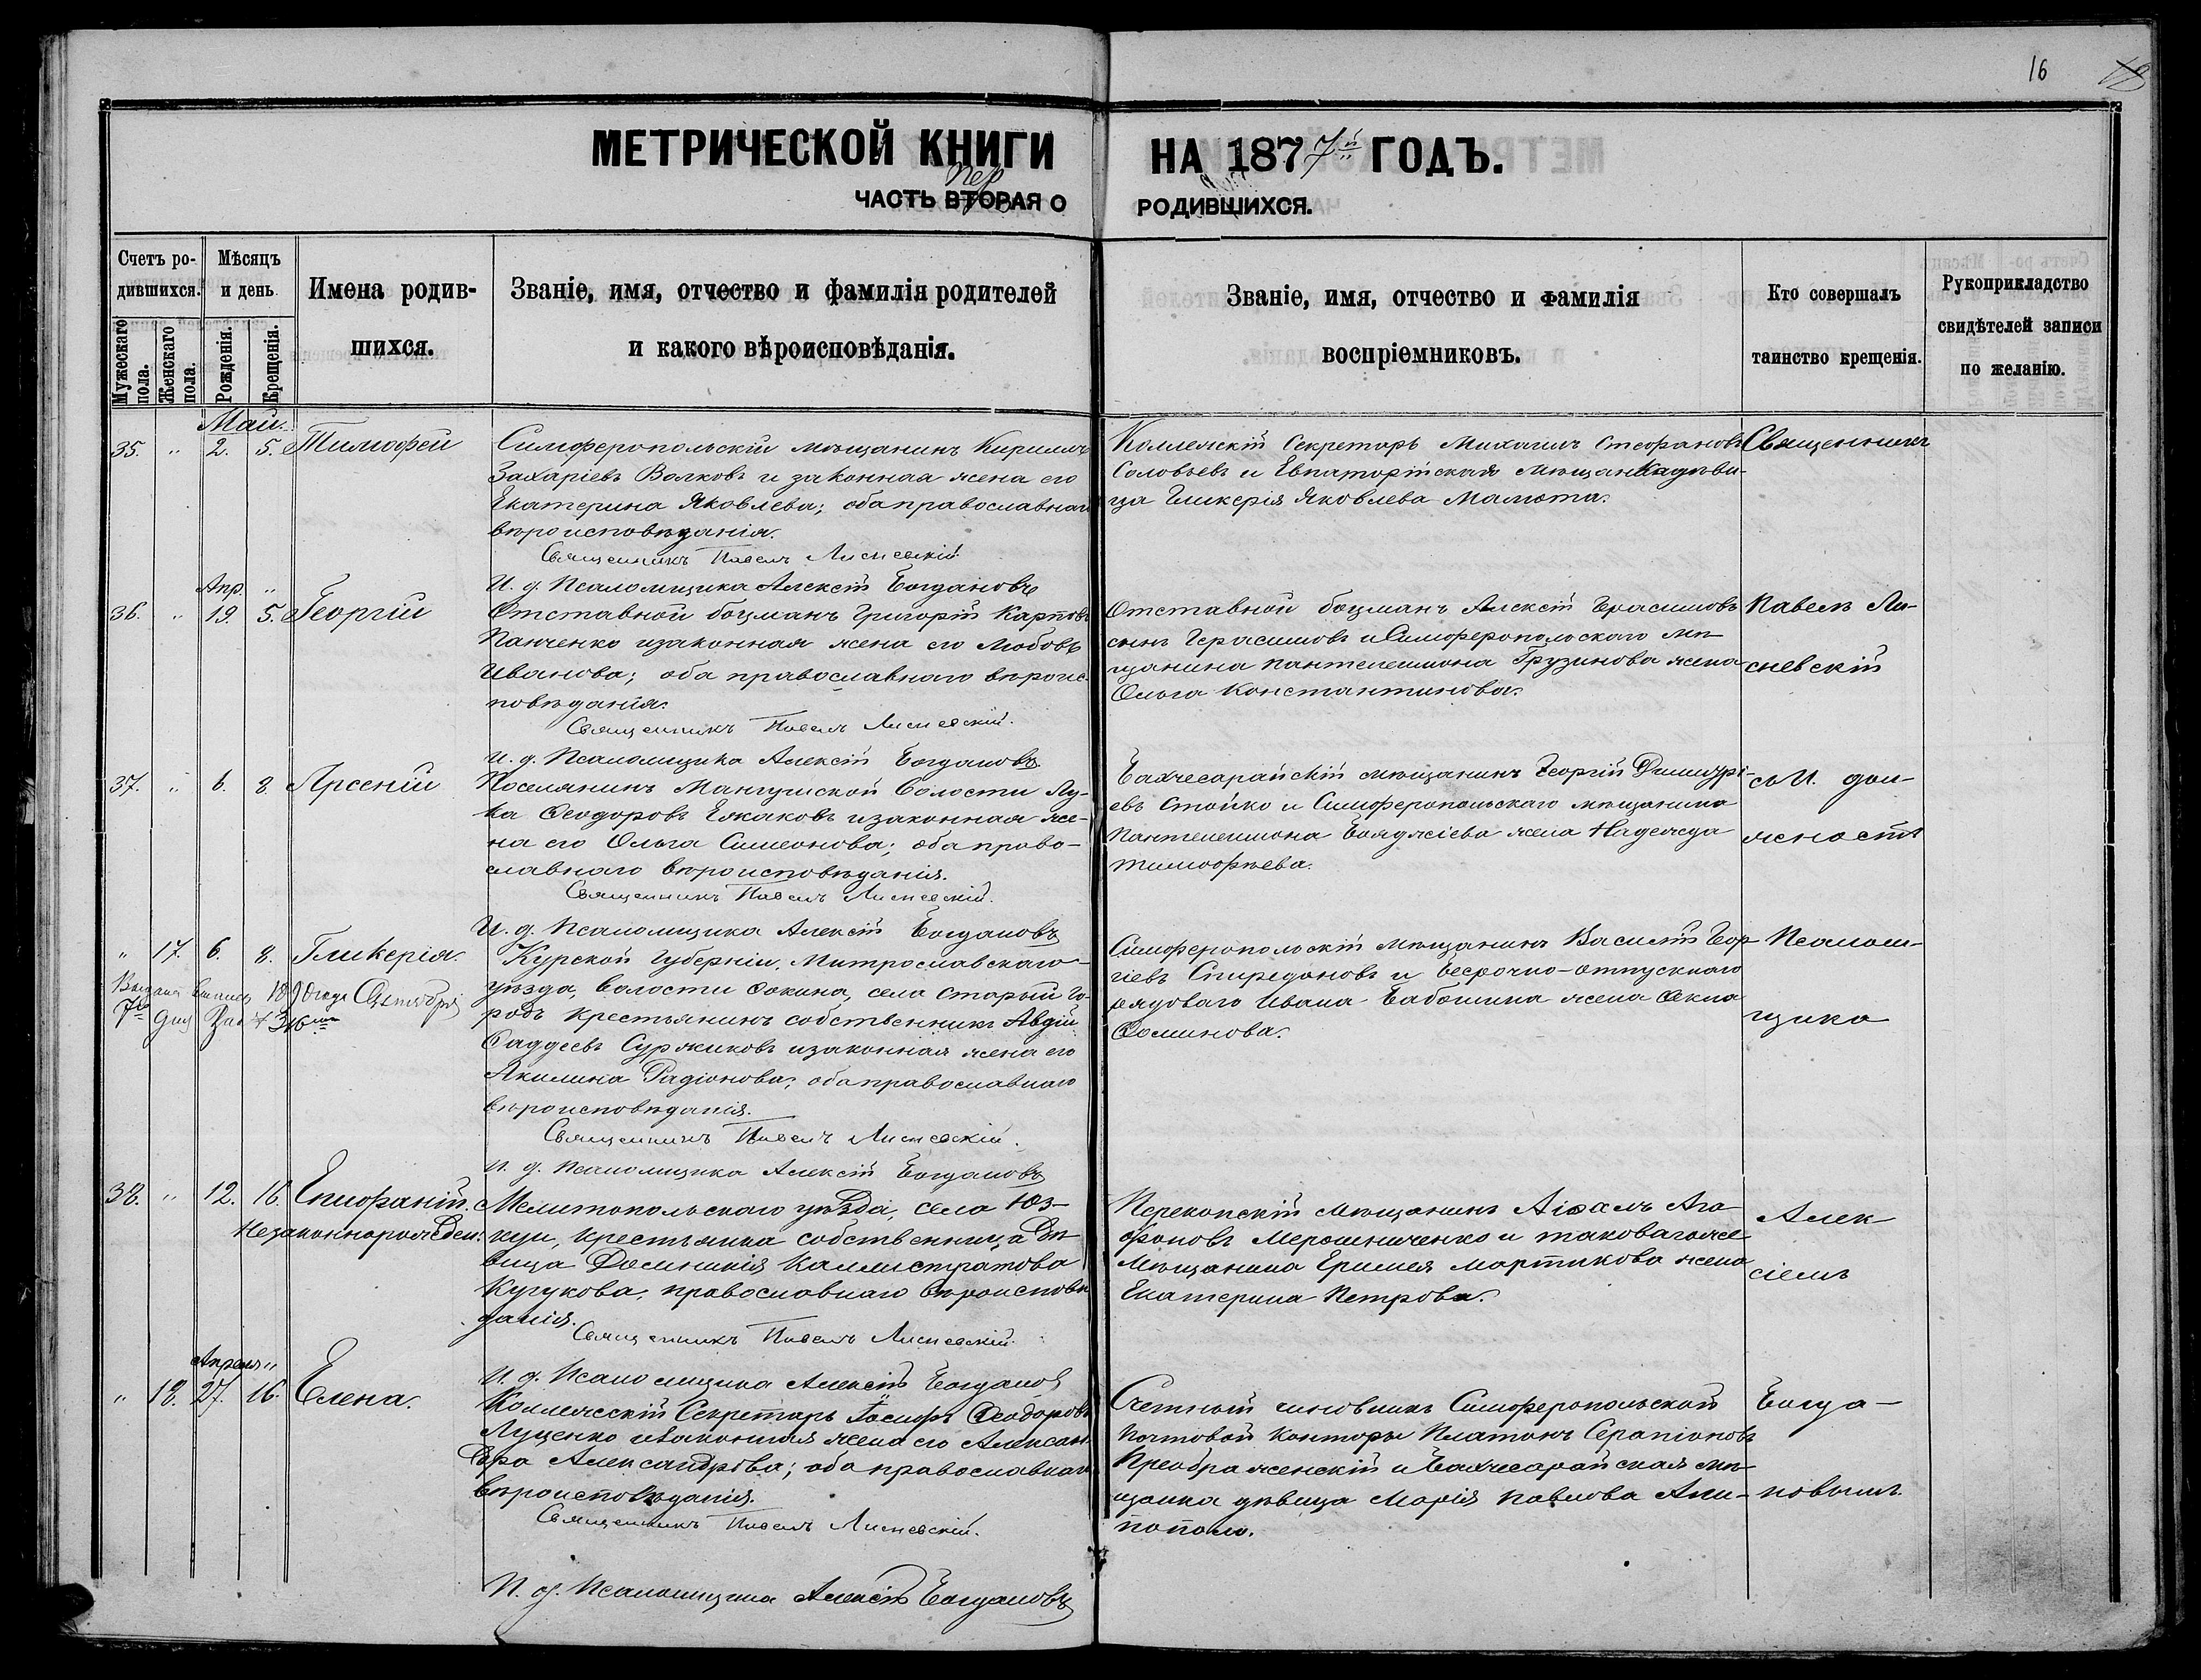 16
МЕТРИЧЕСКОЙ КНИГИ НА 1877й ГОДЪ.
ЧАСТЬ ВТОРАЯ О РОДИВШИХСЯ.
пер
Счетъ родившихся.
Мужескаго пола.
Женскаго пола.
Мѣсяцъ и день
Рожденія.
Крещенія.
Имена родившихся.
Званіе, имя, отчество и фамилія родителей
и какого вѣроисповѣданія.
Званіе, имя, отчество и фамилія
воспріемниковъ.
Кто совершалъ
таинство крещенія.
Рукоприкладство
свидѣтелей записи
по желанію.
Май.
35. " 2. 5. Тимофей
Симферопольскій мѣщанинъ Кирилъ
Захаріевъ Волковъ и законная жена его
Екатерина Яковлева; оба православнаго
вѣроисповѣданія.
Священникъ Павелъ Лисневскій.
И. д. Псаломщика Алексій Богдановъ
Коллежскій Секретарь Михаилъ Стефановъ
Соловьевъ и Евпаторійская мѣщанка дѣви-
ца Гликерія Яковлева Мамота.
Священникъ
Апр. "
36. " 19. 5. Георгій
Отставной боцманъ Григорій Карповъ
Панченко и законная жена его Любовь
Иванова; оба православнаго вѣроис-
повѣданія.
Священникъ Павелъ Лисневскій.
И. д. Псаломщика Алексій Богдановъ
Отставной боцманъ Алексій Герасимовъ
сынъ Герасимовъ и Симферопольскаго мѣ-
щанина Пантелеимона Грузинова жена
Ольга Константинова.
Павелъ Ли-
сневскій
37. " 6. 8. Арсеній
Поселянинъ Мангушской Волости Лу-
ка Феодоровъ и законная же-
на его Ольга Симеонова; оба право-
славнаго вѣроисповѣданія.
Священникъ Павелъ Лисневскій.
И. д. Псаломщика Алексій Богдановъ
Бахчесарайскій мѣщанинъ Георгій Димитрі-
евъ Стойко и Симферопольскаго мѣщанина
Пантелеимона Бояджіева жена Надежда
Тимофѣева.
съ И. дол-
жность
" 17. 6. 8. Гликерія.
Выдана выпись года Сентября
7го дня за № 316
Курской Губерніи, Митрославскаго
уѣзда, волости Фокина, села Старый Го-
родъ крестьянинъ собственникъ Авдій
Фаддеевъ Суржиковъ и законная жена его
Акилина Радіонова; оба православнаго
вѣроисповѣданія.
Священникъ Павелъ Лисневскій.
И. д. Псаломщика Алексій Богдановъ
Симферопольскій мѣщанинъ Василій Геор-
гіевъ Спиридоновъ и безсрочно-отпускнаго
рядоваго Ивана Бабошина жена Фекла
Фоминова.
Псалом-
щика
38. " 12. 16. Епифаній.
Незаконнорожден:
Мелитопольскаго уѣзда, села Юз-
куи, крестьянка собственница дѣ-
вица Домникія Каллистратова
Кугукова, православнаго вѣроисповѣ-
данія.
Священникъ Павелъ Лисневскій.
И. д. Псаломщика Алексій Богдановъ
Перекопскій мѣщанинъ Ага-
фоновъ Мерошниченко и таковагоже
мѣщанина Еримея Мартикова жена
Екатерина Петрова.
Алек-
сіемъ
Апреля "
" 18. 27. 16. Елена.
Коллежскій Секретарь Іосифъ Феодоровъ
Луценко и законная жена его Алексан-
дра Александрова; оба православнаго
вѣроисповѣданія.
Священникъ Павелъ Лисневскій.
И. д. Псаломщика Алексій Богдановъ
Счетный чиновникъ Симферопольской
почтовой Конторы Платонъ Серапіоновъ
Преображенскій и Бахчесарайская мѣ-
щанка дѣвица Марія Павлова
Богда-
новымъ.